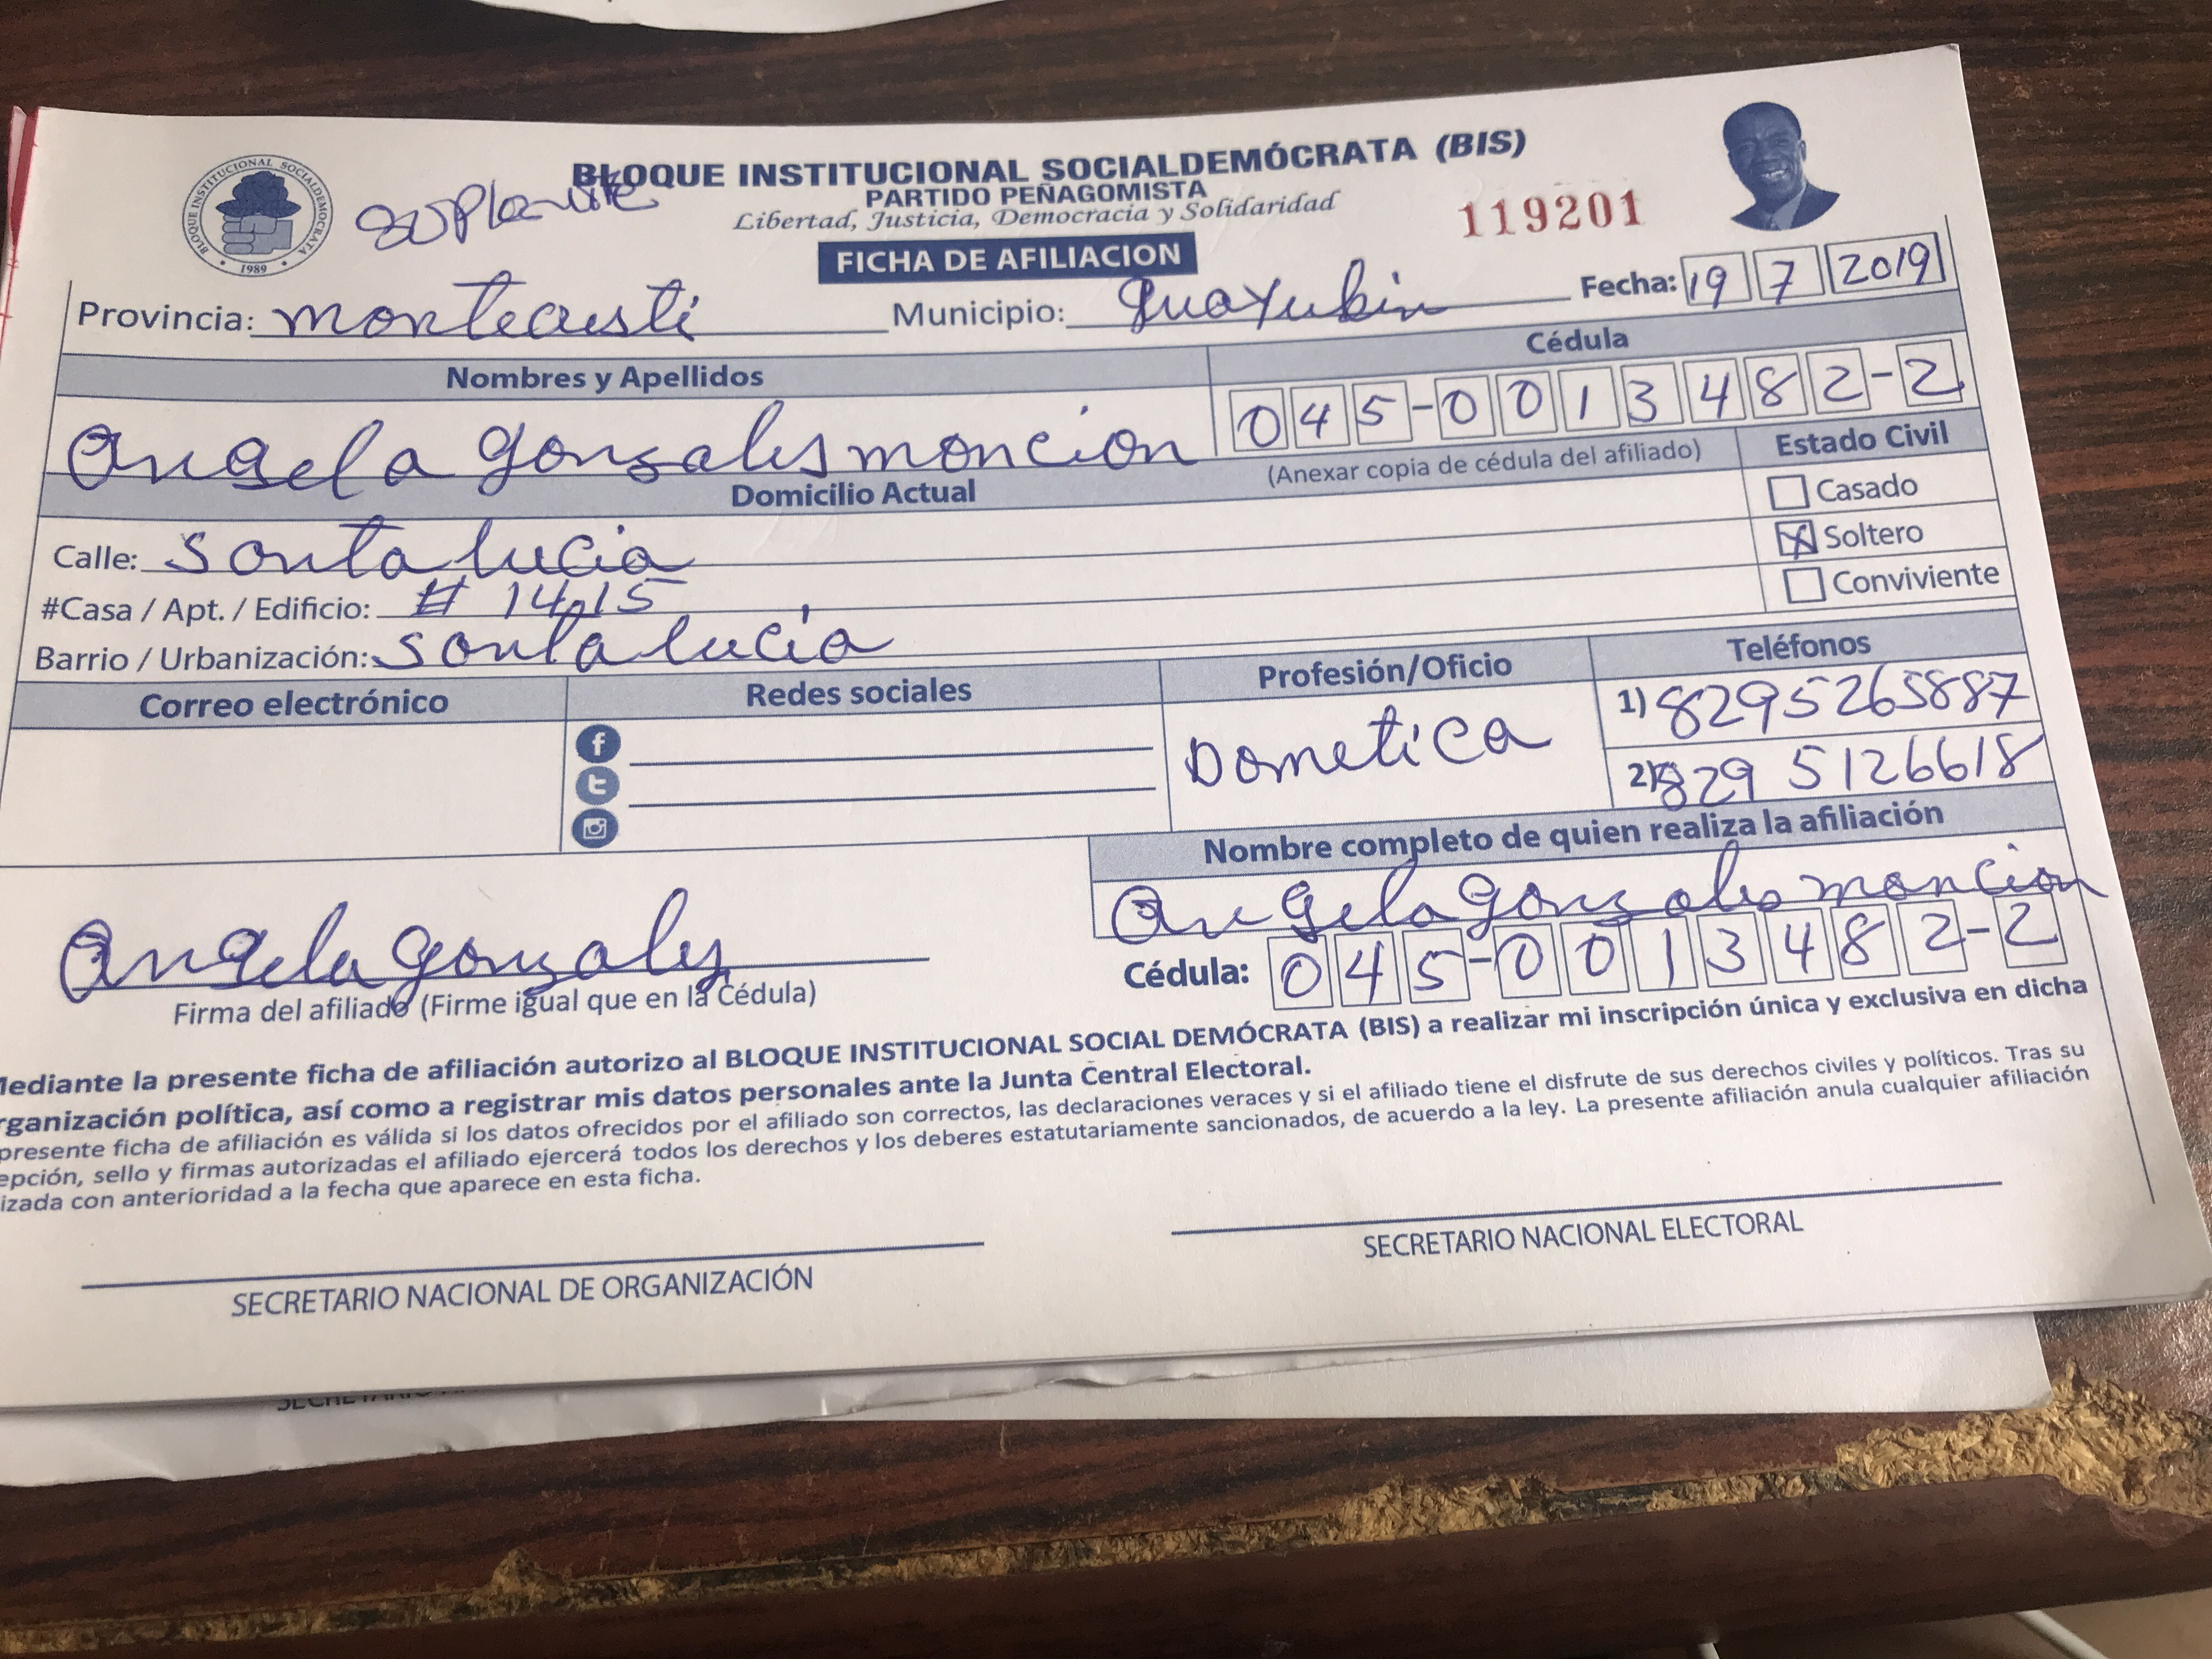 BLOQUE INSTITUCIONAL SOCIALDEMÓCRATA
1989
BLOQUE INSTITUCIONAL SOCIALDEMÓCRATA (BIS)
PARTIDO PEÑAGOMISTA
Libertad, Justicia, Democracia y Solidaridad
119201
FICHA DE AFILIACION
Provincia: montecristi Municipio: guayubin Fecha: 19 7 2019
Nombres y Apellidos Cédula
Angela gonzales moncion 045-0013482-2
(Anexar copia de cédula del afiliado)
Estado Civil
Domicilio Actual
Casado
Calle: Santa lucia
X Soltero
#Casa / Apt. / Edificio: # 14,15
Conviviente
Barrio / Urbanización: Santa lucia
Correo electrónico Redes sociales Profesión/Oficio Teléfonos
Dometica
1) 8295265887
2) 829 5126618
Nombre completo de quien realiza la afiliación
Angela gonzales moncion
Angela gonzales
Cédula: 045-0013482-2
Firma del afiliado (Firme igual que en la Cédula)
Mediante la presente ficha de afiliación autorizo al BLOQUE INSTITUCIONAL SOCIAL DEMÓCRATA (BIS) a realizar mi inscripción única y exclusiva en dicha
rganización política, así como a registrar mis datos personales ante la Junta Central Electoral.
presente ficha de afiliación es válida si los datos ofrecidos por el afiliado son correctos, las declaraciones veraces y si el afiliado tiene el disfrute de sus derechos civiles y políticos. Tras su
epción, sello y firmas autorizadas el afiliado ejercerá todos los derechos y los deberes estatutariamente sancionados, de acuerdo a la ley. La presente afiliación anula cualquier afiliación
izada con anterioridad a la fecha que aparece en esta ficha.
SECRETARIO NACIONAL DE ORGANIZACIÓN
SECRETARIO NACIONAL ELECTORAL